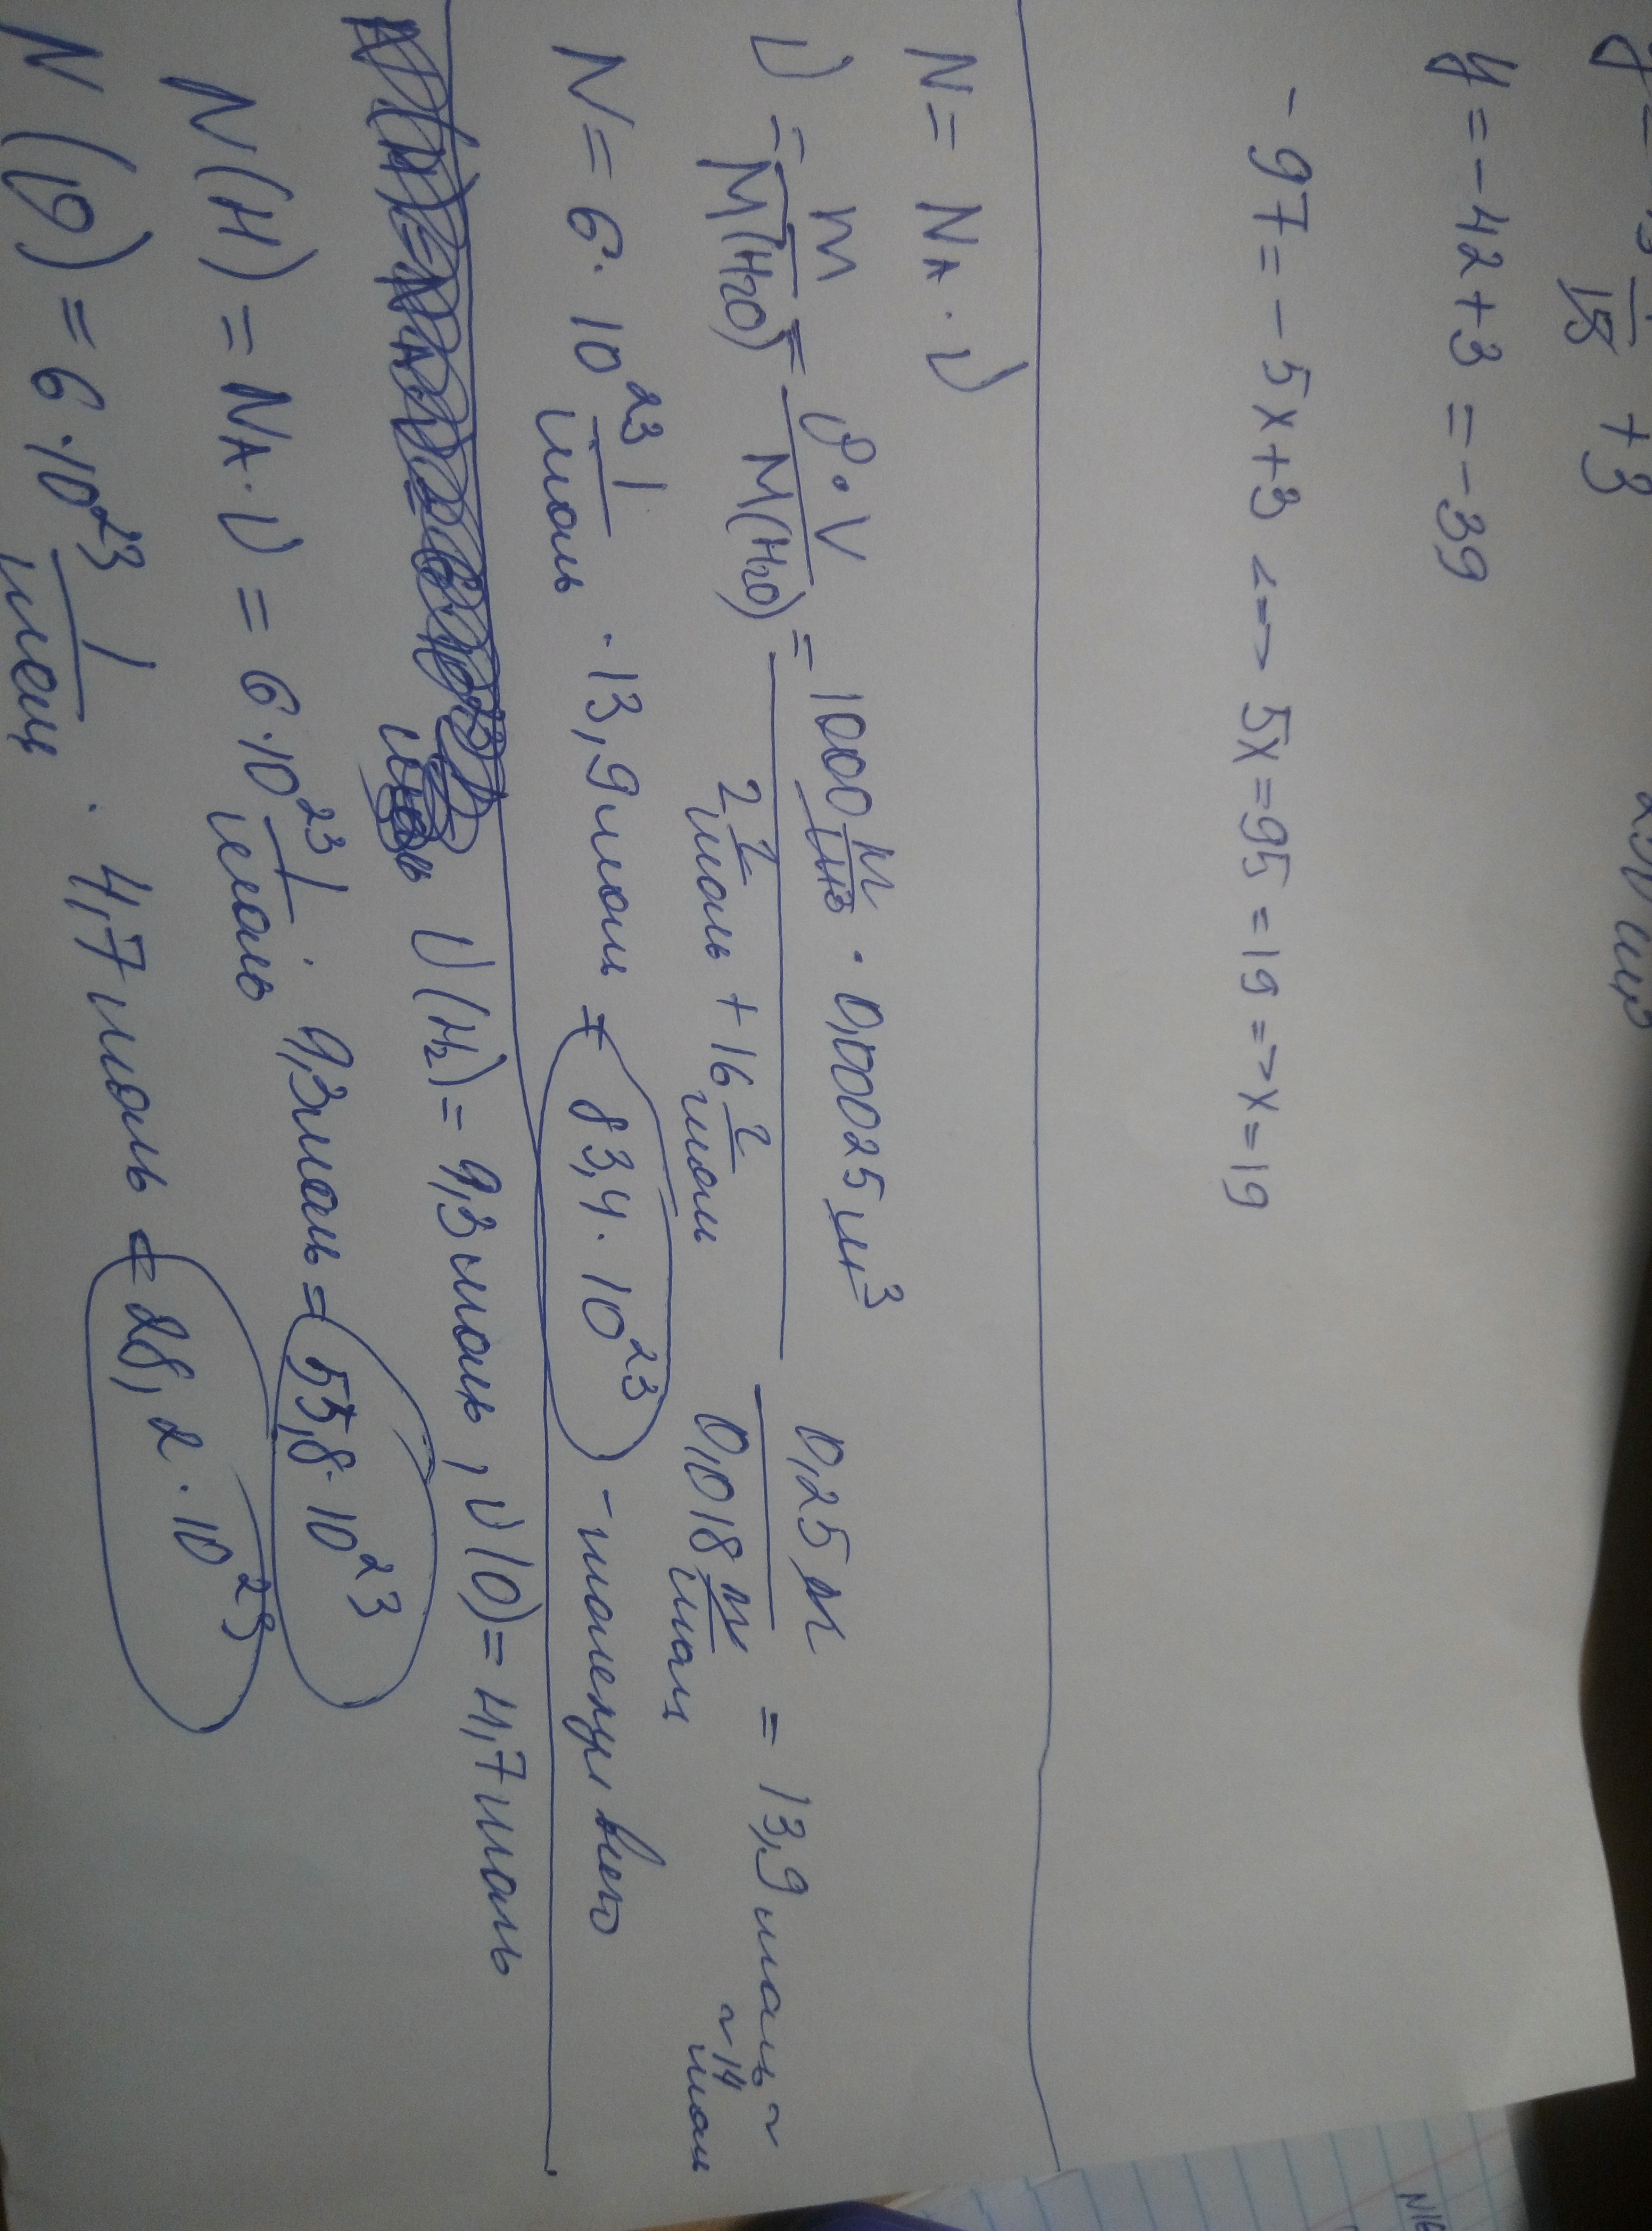 + 3
y = -42 + 3 = -39
-97 = -5x+3 <=> 5x = 95 = 19 => x = 19
N = Nᴀ · ν
ν = m/M(H₂O) = ρ·V/M(H₂O) = 1000 кг/м³ · 0,00025 м³ / (2 г/моль + 16 г/моль) 0,25 кг / 0,018 кг/моль = 13,9 моль ~ ~14 моль
N = 6 · 10²³ 1/моль · 13,9 моль = 83,4 · 10²³ - молекул всего
ν(H₂) = 9,3 моль, ν(O) = 4,7 моль
N(H) = Nᴀ · ν = 6 · 10²³ 1/моль · 9,3 моль = 55,8 · 10²³
N(O) = 6 · 10²³ 1/моль · 4,7 моль = 28,2 · 10²³